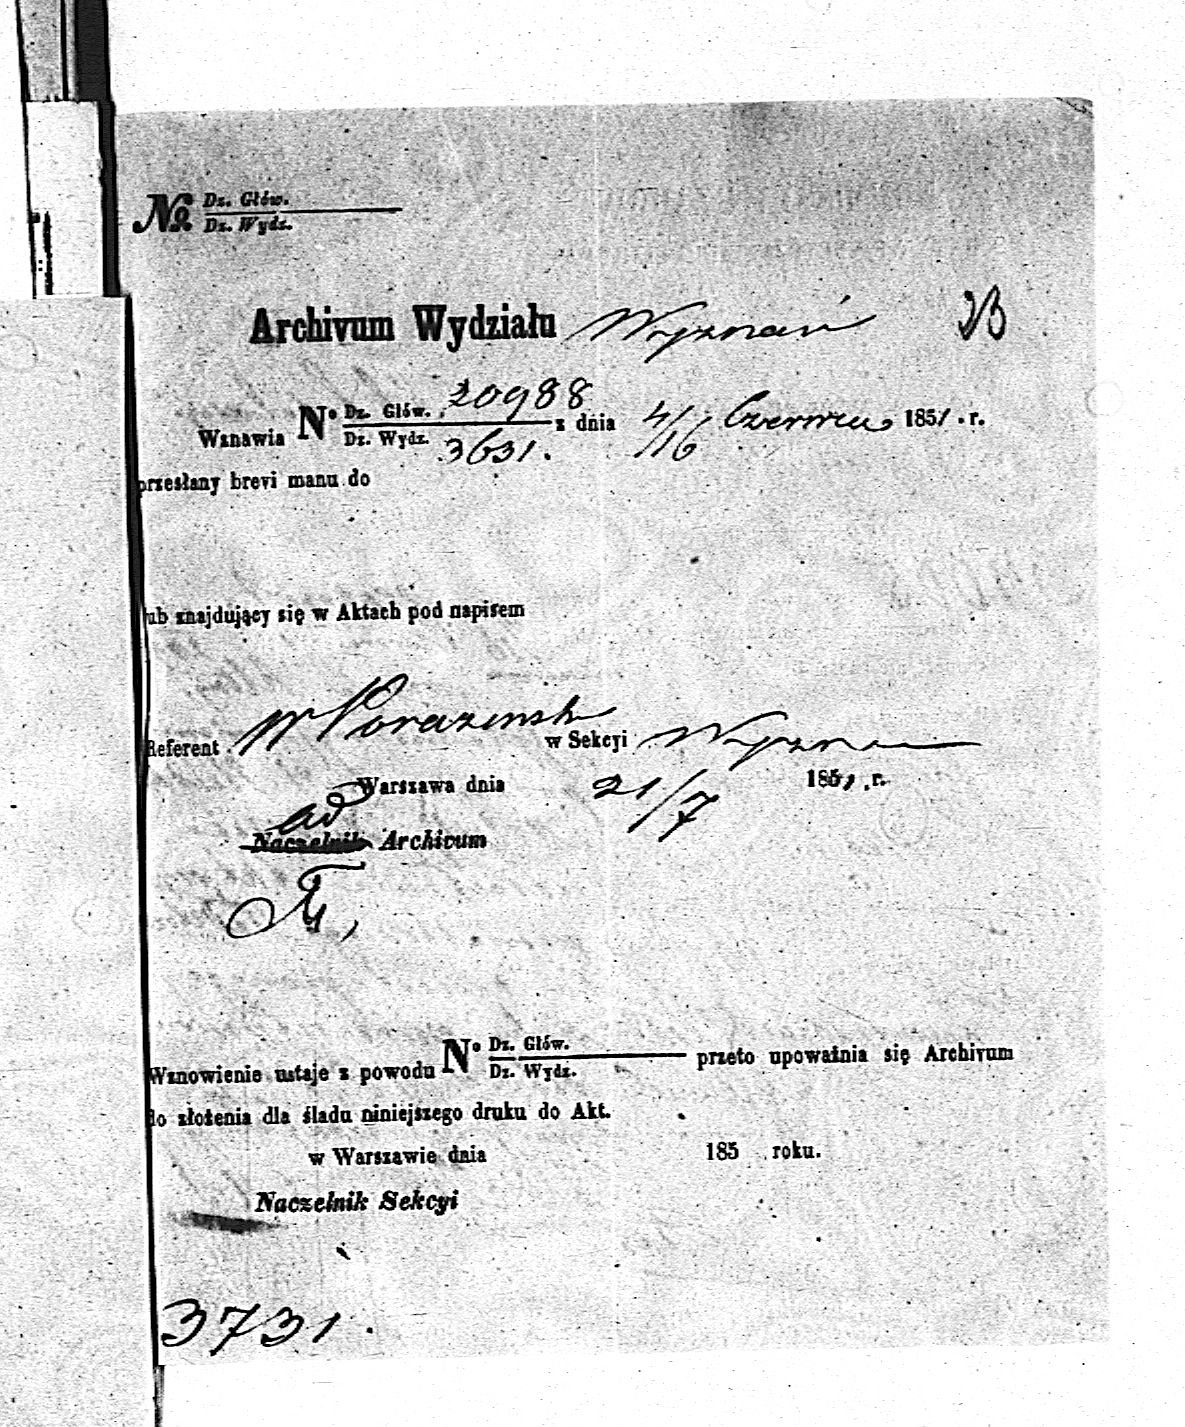 № Dz. Głów.
Dz. Wydz.
Archivum Wydziału Wyznań
20988
Wznawia N° Dz. Głów. z dnia 4/16 Czerwca 1851. r.
Dz. Wydz. 3631.
przesłany brevi manu do
lub znajdujący się w Aktach pod napisem
Referent W Porazinski w Sekcyi Wyznań
Warszawa dnia 21/7 1851, r.
ad
Naczelnik Archivum
Wznowienie ustaje z powodu N° Dz. Głów. przeto upoważnia się Archivum
Dz. Wydz.
do złożenia dla śladu niniejszego druku do Akt.
w Warszawie dnia 185 roku.
Naczelnik Sekcyi
3731.